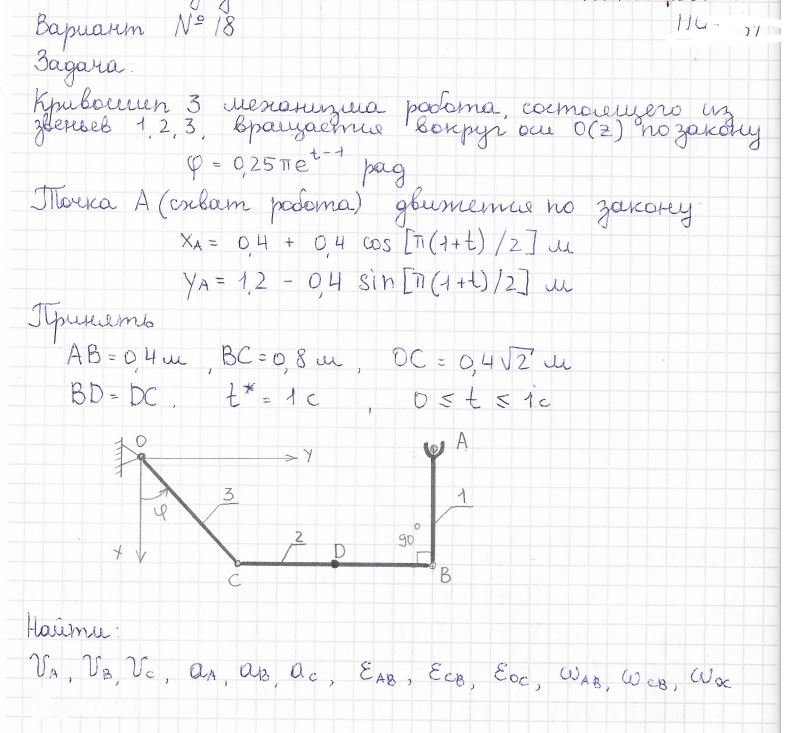 Вариант № 18
Задача.
Кривошип 3 механизма робота, состоящего из
звеньев 1, 2, 3, вращается вокруг оси O(z) по закону
φ = 0,25πe^{t-1} рад
Точка А (схват робота) движется по закону
x_A = 0,4 + 0,4 cos [π(1+t)/2] м
y_A = 1,2 - 0,4 sin [π(1+t)/2] м
Принять
AB = 0,4 м, BC = 0,8 м, OC = 0,4√2 м
BD = DC, t* = 1 с, 0 ≤ t ≤ 1 с
O
y
A
3
1
φ
x
2
D
90°
C
B
Найти:
V_A, V_B, V_C, a_A, a_B, a_C, ε_AB, ε_CB, ε_OC, ω_AB, ω_CB, ω_OC